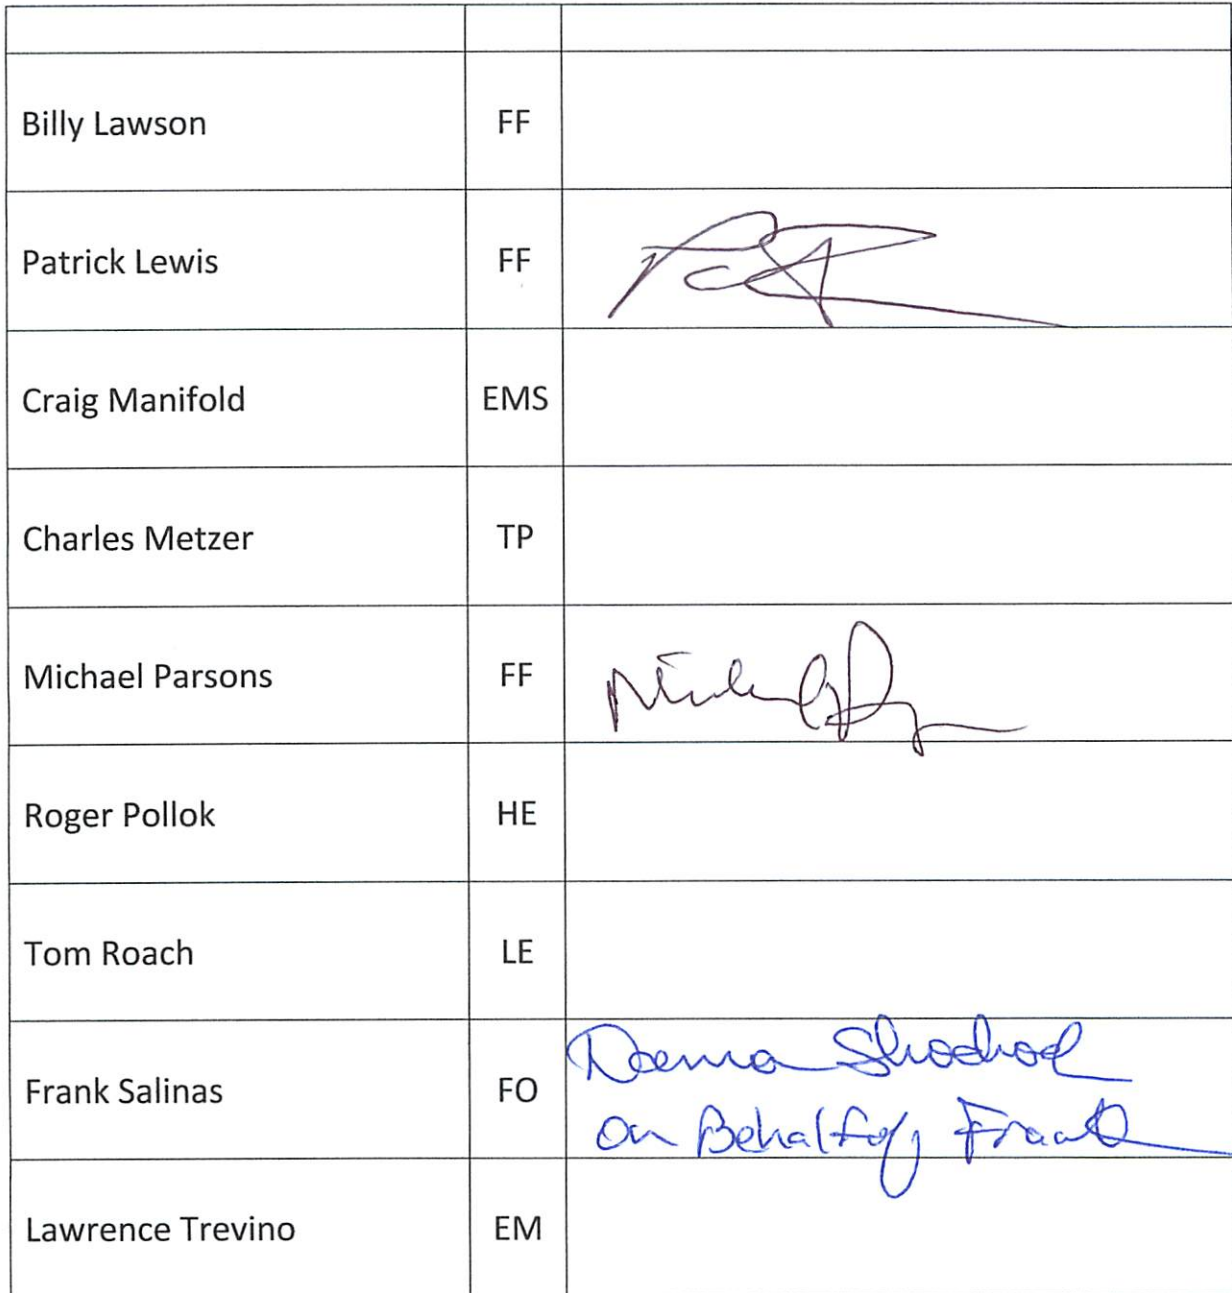 Billy Lawson FF
Patrick Lewis FF
Craig Manifold EMS
Charles Metzer TP
Michael Parsons FF
Roger Pollok HE
Tom Roach LE
Frank Salinas FO
on Behalf of Frank
Lawrence Trevino EM